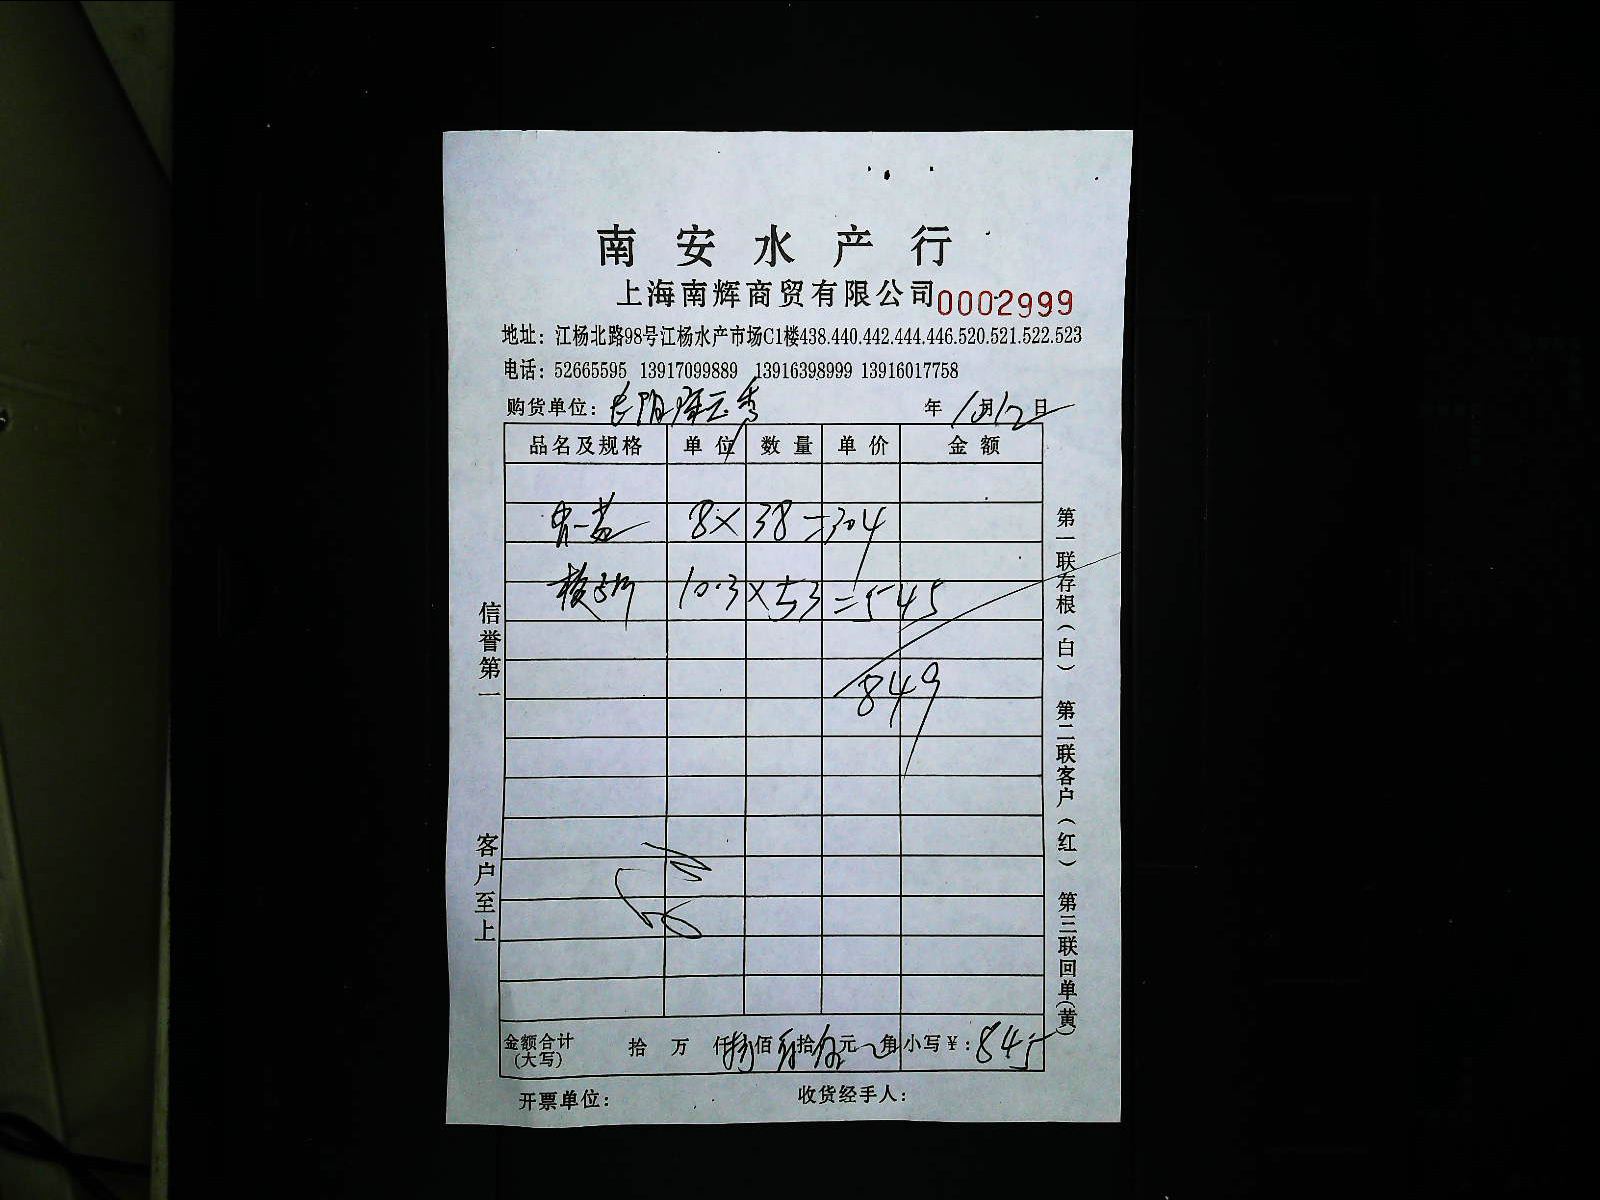 南安水产行
上海南辉商贸有限公司 0002999
地址：江杨北路98号江杨水产市场C1楼438.440.442.444.446.520.521.522.523
电话：52665595 13917099889 13916398999 13916017758
购货单位： 年 10月12日
品名及规格 单位 数量 单价 金额
8×38=304
10.3×53=545
849
信誉第一
客户至上
第一联存根（白） 第二联客户（红） 第三联回单（黄）
金额合计（大写） 拾 万 仟捌佰 拾伍元 角 小写￥：845
开票单位： 收货经手人：